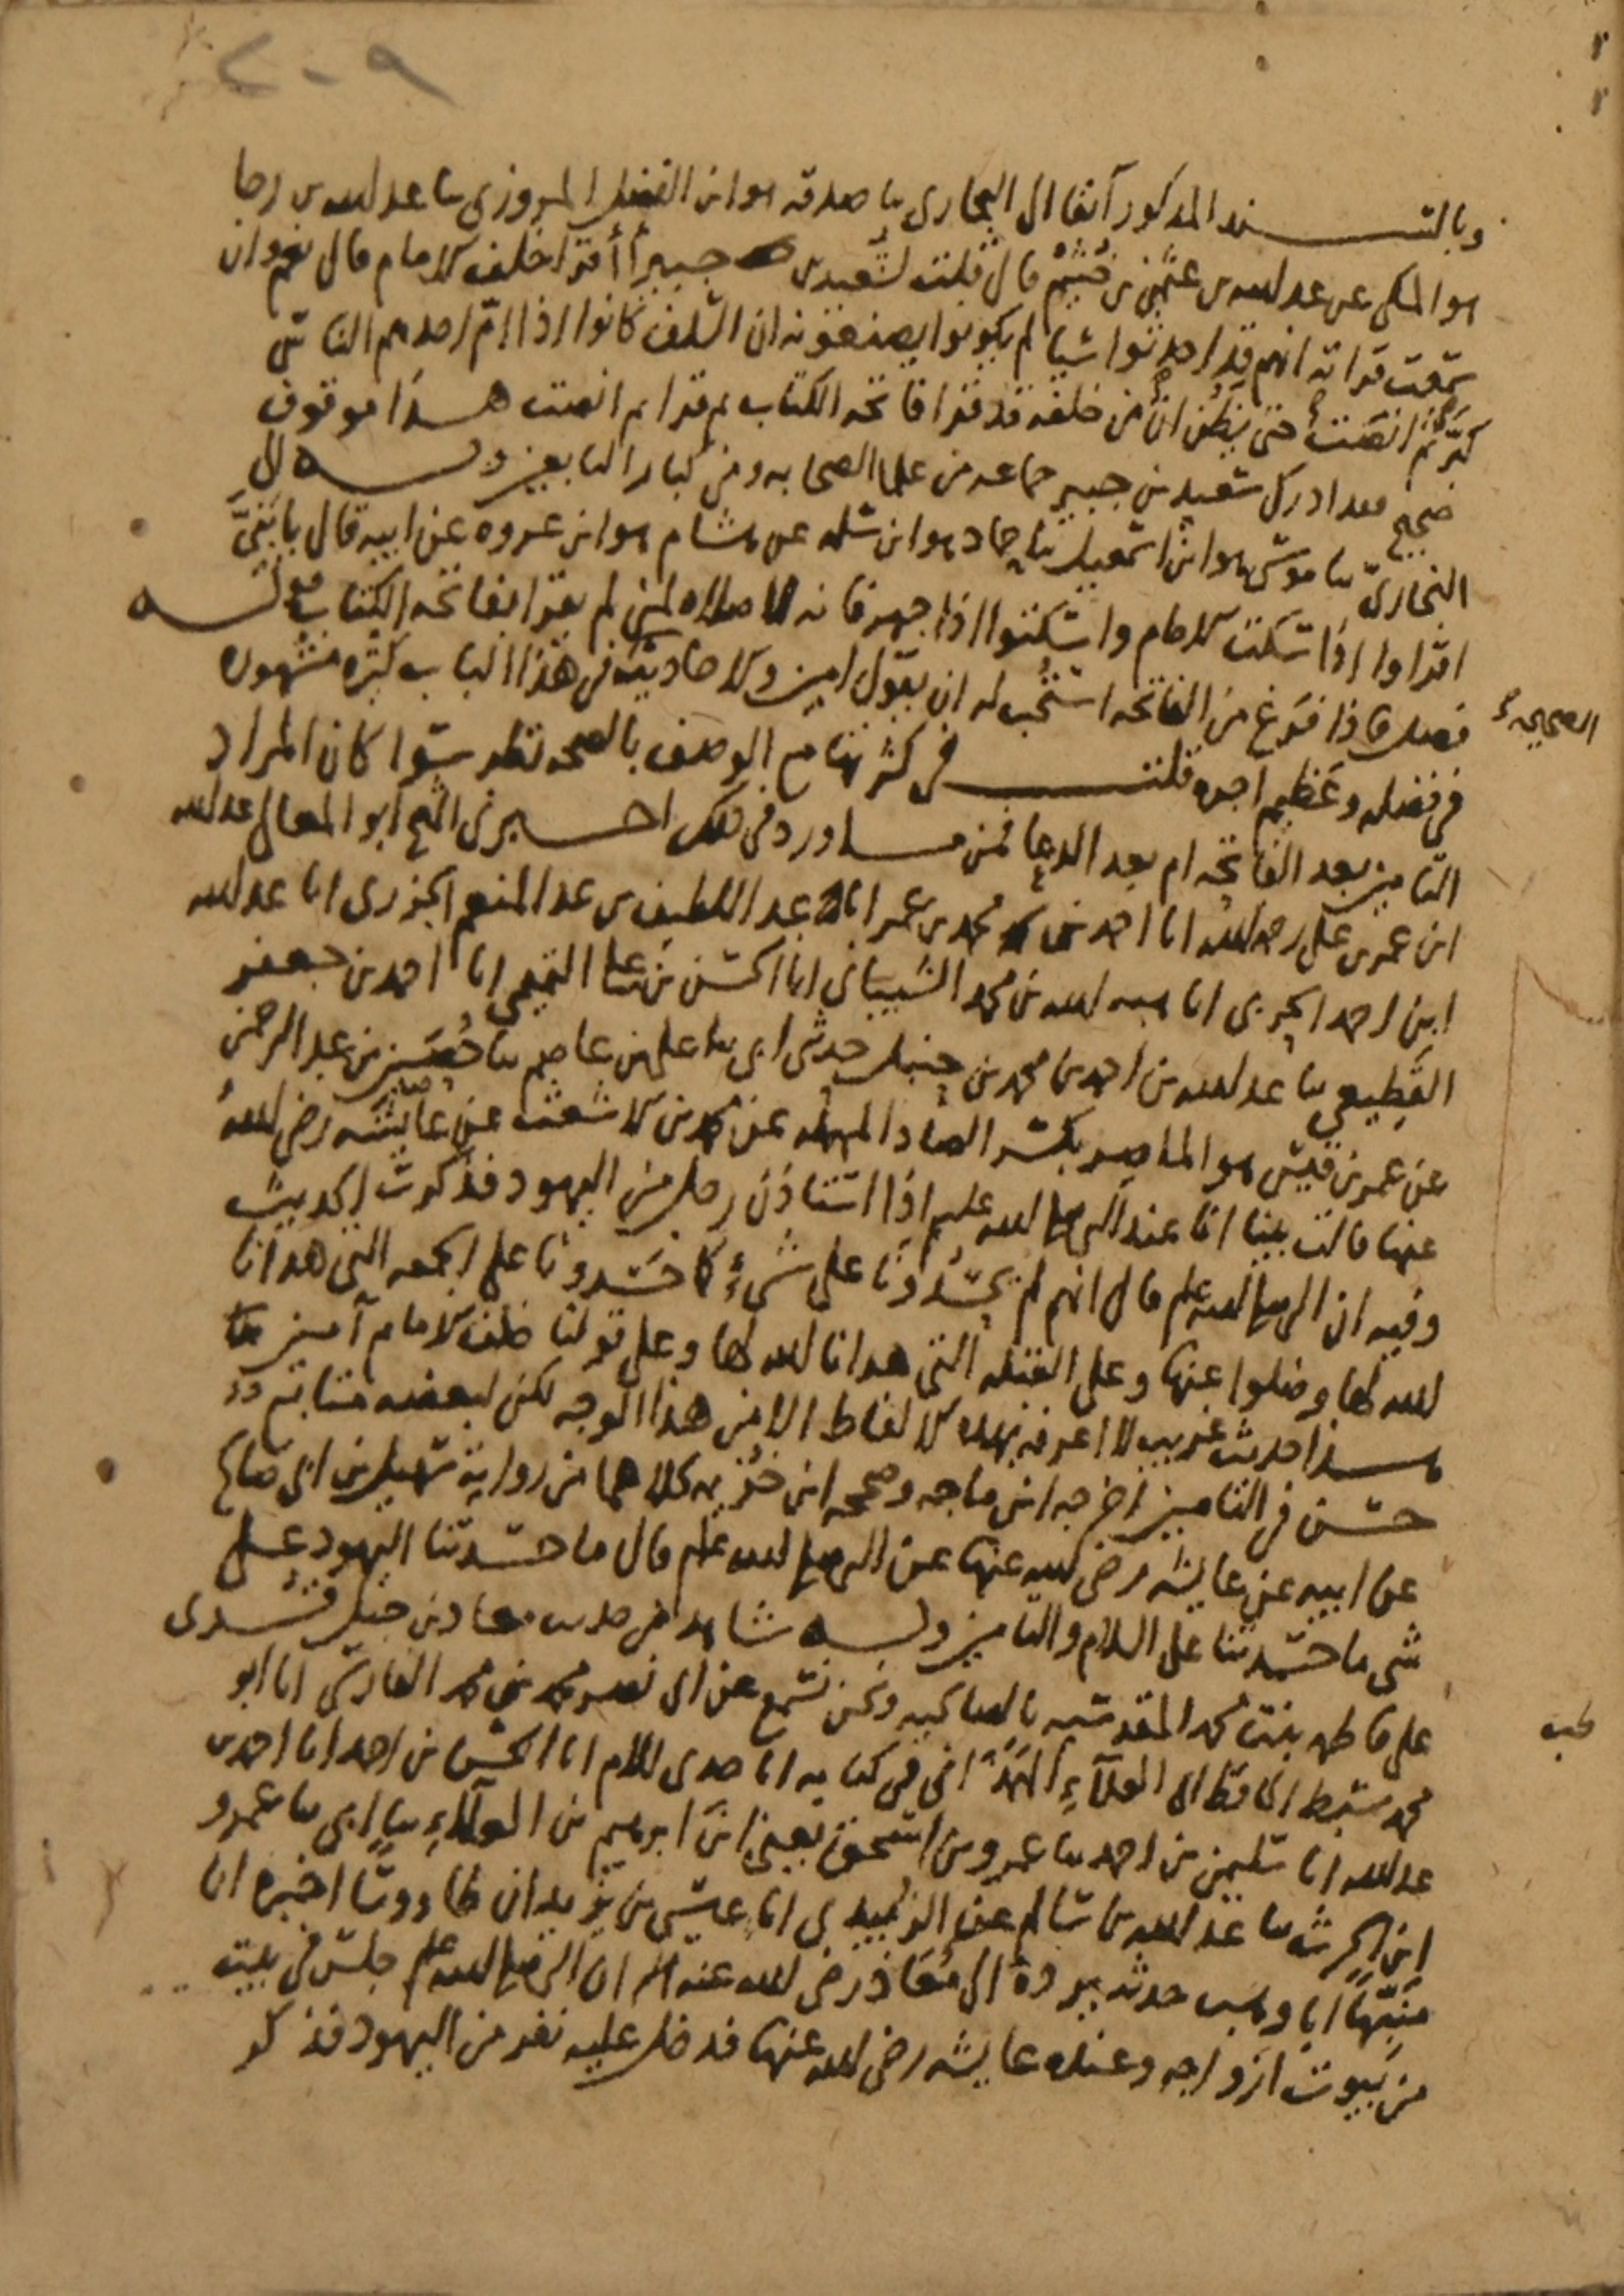 ٢٠٩
وبالسند المذكور آنفا الى البخاري ثنا صدقه هو ابن الفضل المروزي ثنا عبد الله بن رجا
هو المكي عن عبد الله بن عثمن بن خثيم قال قلت لسعيد بن جبير أأقرا خلف الامام قال نعم وان
سمعت قراته انهم قد احدثوا شيا لم يكونوا يصنعونه ان السلف كانوا اذا امّ احدهم الناس
كبّر ثم انصت حتى يظن ان من خلفه قد قرا فاتحه الكتاب ثم قرا ثم انصت هذا موقوف
صحيح فقد ادرك سعيد بن جبير جماعه من علما الصحابه ومن كبار التابعين وبه الى
البخاري ثنا موسى هو ابن اسمعيل ثنا حماد هو ابن سلمه عن هشام هو ابن عروه عن ابيه قال يا بَنِيَّ
اقراوا اذا سكت الامام واسكتوا اذا جهر فانه لا صلاه لمن لم يقرا بفاتحه الكتاب قوله
فصل فاذا فرغ من الفاتحه استحب له ان يقول امين والاحاديث في هذا الباب كثره مشهوره
الصحيحه
في فضله وعظيم اجره قلت في كثرتها مع الوصف بالصحه نظر سوا كان المراد
التامين بعد الفاتحه ام بعد الدعا فمن ما ورد في ذلك اخبرني الشيخ ابو المعالي عبد الله
ابن عمر بن علي رحمه الله انا احمد بن محمد بن عمر انا عبد اللطيف بن عبد المنعم الجزري انا عبد الله
ابن احمد الحربي انا هبه الله بن محمد الشيباني انا الحسن بن علي التميمي انا احمد بن جعفر
القطيعي ثنا عبد الله بن احمد بن محمد بن حنبل حدثني ابي ثنا علي بن عاصم ثنا حُصَين بن عبد الرحمن
عن عمر بن قيس هو الماصر بكسر الصاد المهمله عن محمد بن الاشعث عن عايشه رضي الله
عنها قالت بينا انا عند النبي صلى الله عليه وسلم اذا استاذن رجل من اليهود فذكرت الحديث
وفيه ان النبي صلى الله عليه وسلم قال انهم لم يحسدونا على شيء كما حسدونا على الجمعه التي هدانا
الله لها وضلوا عنها وعلى القبله التي هدانا الله لها وعلى قولنا خلف الامام آمين
هذا حديث غريب لا اعرفه بهذه الالفاظ الا من هذا الوجه لكن لبعضه متابع
حسن في التامين اخرجه ابن ماجه وصححه ابن خزيمه كلاهما من رواية سهيل بن ابي صالح
عن ابيه عن عايشه رضي الله عنها عن النبي صلى الله عليه وسلم قال ما حسدتنا اليهود على
شي ما حسدتنا على السلام والتامين وله شاهد من حديث معاذ بن جبل قُرئ
على فاطمه بنت محمد المقدسيه بالصالحيه ونحن نسمع عن ابي نصر محمد بن محمد الفارسي انا ابو
محمد سبط الحافظ ابي العلآء الهمذاني في كتابه انا جدي للام انا الحسن بن احمد انا احمد بن
عبد الله انا سليمن بن احمد ثنا عمرو بن اسحق يعني ابن ابرهيم بن العلآء ثنا ابي ثنا عمرو
ابن الحرث ثنا عبد الله بن سالم عن الزُبيدي انا عيسى بن يزيد ان طاووسا اخبره ان
مُنَبِّهًا ابا وهب حدثه يرده الى مُعَاذ رضي الله عنه ان النبي صلى الله عليه وسلم جلس في بيت
من بيوت ازواجه وعنده عايشه رضي الله عنها فدخل عليه نفر من اليهود فذكر